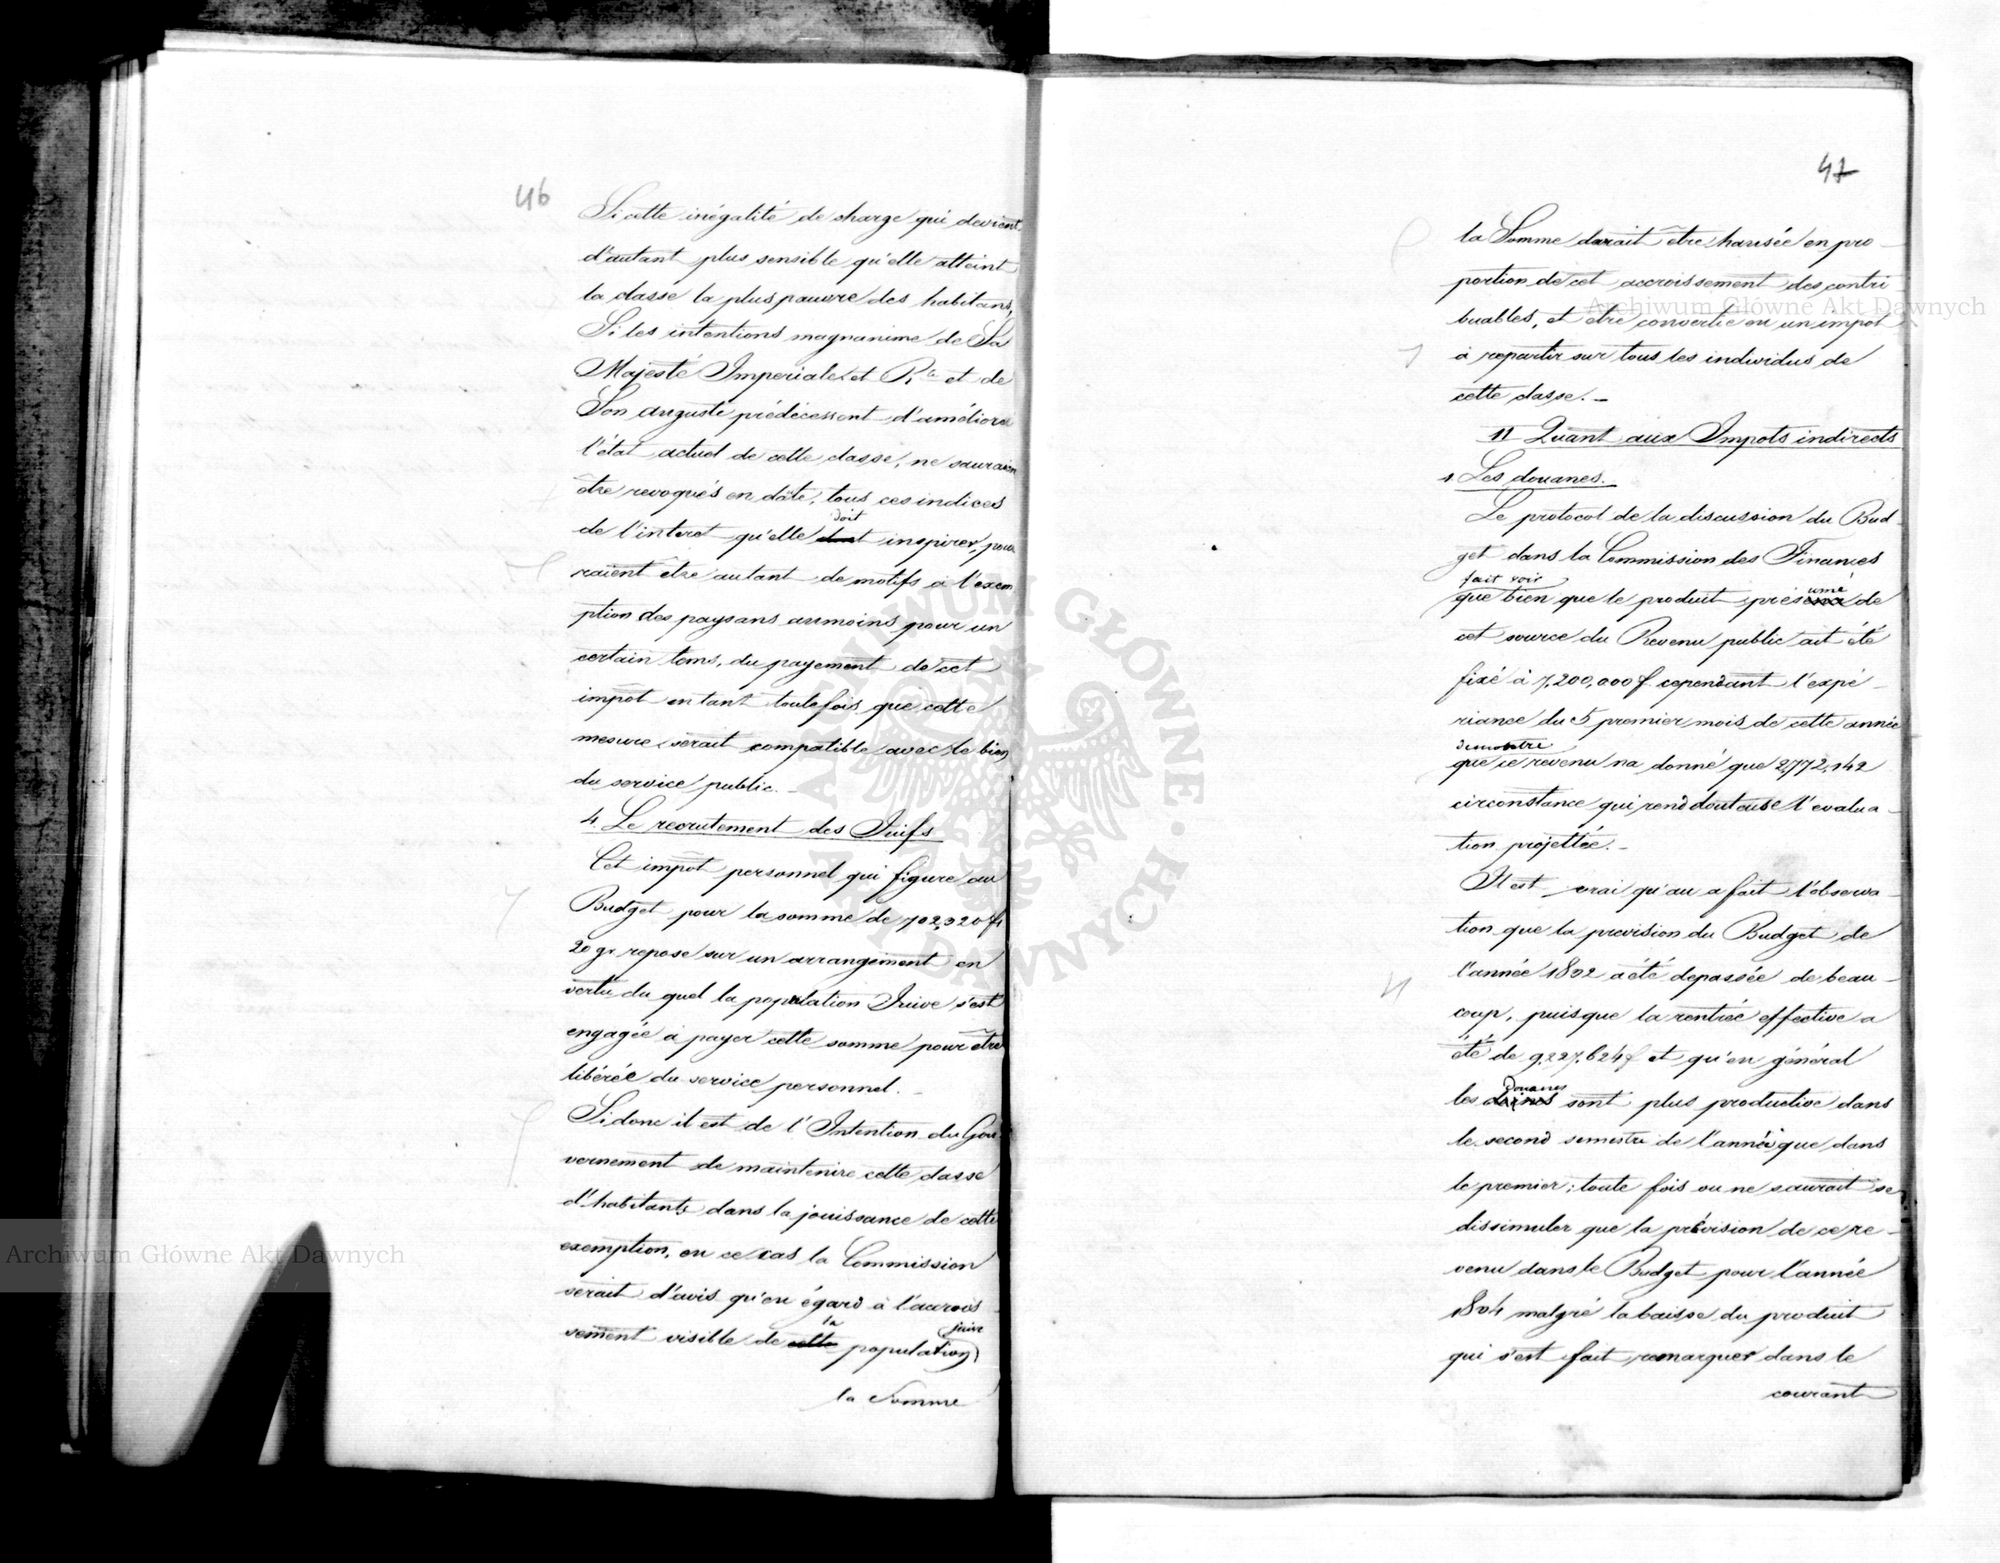 46
Si cette inégalité de charge qui devient
d'autant plus sensible qu'elle atteint
la classe la plus pauvre des habitans,
Si les intentions magnanime de Sa
Majesté Imperiale et Rle et de
Son auguste prédécessent d'améliorer
l'état actuel de cette classe, ne sauraien
être revoqués en dôte, tous ces indices
doit
de l'interet qu'elle inspirer, pour
raient etre autant de motifs à l'exem
ption des paysans aumoins pour un
certain tems, du payement de cet
impôt entant toutefois que cette
mesure serait compatible avec le bien
du service public. —
4. Le recrutement des Juifs
Cet impôt personnel qui figure au
Budget pour la somme de 702,320 fl
20 gr repose sur un arrangement en
vertu du quel la population Juive s'est
engagée à payer cette somme pour être
libérée du service personnel. —
Si donc il est de l'Intention du Gou
vernement de maintenire cette classe
d'habitants dans la jouissance de cette
exemption, en ce cas la Commission
serait d'avis qu'en égard à l'accrois
la juive
sement visible de cette population
la Somme
47
la Somme devrait être hausée en pro —
portion de cet accroissement des contri
buables, et etre convertie en un impot
à repartir sur tous les individus de
cette classe. —
II Quant aux Impots indirects
1. Les douanes.
Le protocol de la discussion du Bud
get dans la Commission des Finances
fait voir umé
que bien que le produit présumé de
cet source du Revenu public ait été
fixé à 7,200,000 f. cependant l'expé —
riance du 5 premier mois de cette année
demontre
que ce revenu na donné que 2,772,142
circonstance qui rend douteuse l'evalua —
tion projettée. —
Il est vrai qu'au a fait l'observa —
tion que la prevision du Budget de
l'année 1802 a été depassée de beau —
coup, puisque la rentrée effective a
été de 9,227,624 f et qu'en général
douanes
les sont plus productive dans
le second semestre de l'année que dans
le premier; toute fois ou ne saurait se
dissimuler que la prévision de ce re —
venu dans le Budget pour l'année
1804 malgré la baisse du produit
qui s'est fait remarquer dans le
courant
Archiwum Główne Akt Dawnych
Archiwum Główne Akt Dawnych
ARCHIWUM GŁÓWNE AKT DAWNYCH